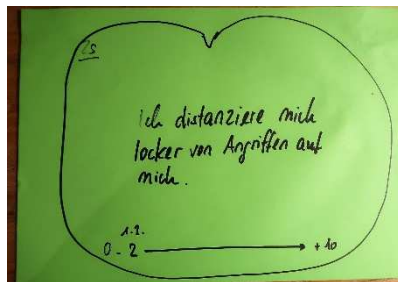 2s
Ich distanziere mich
locker von Angriffen auf
mich.
1.2.
0 - 2 → +10